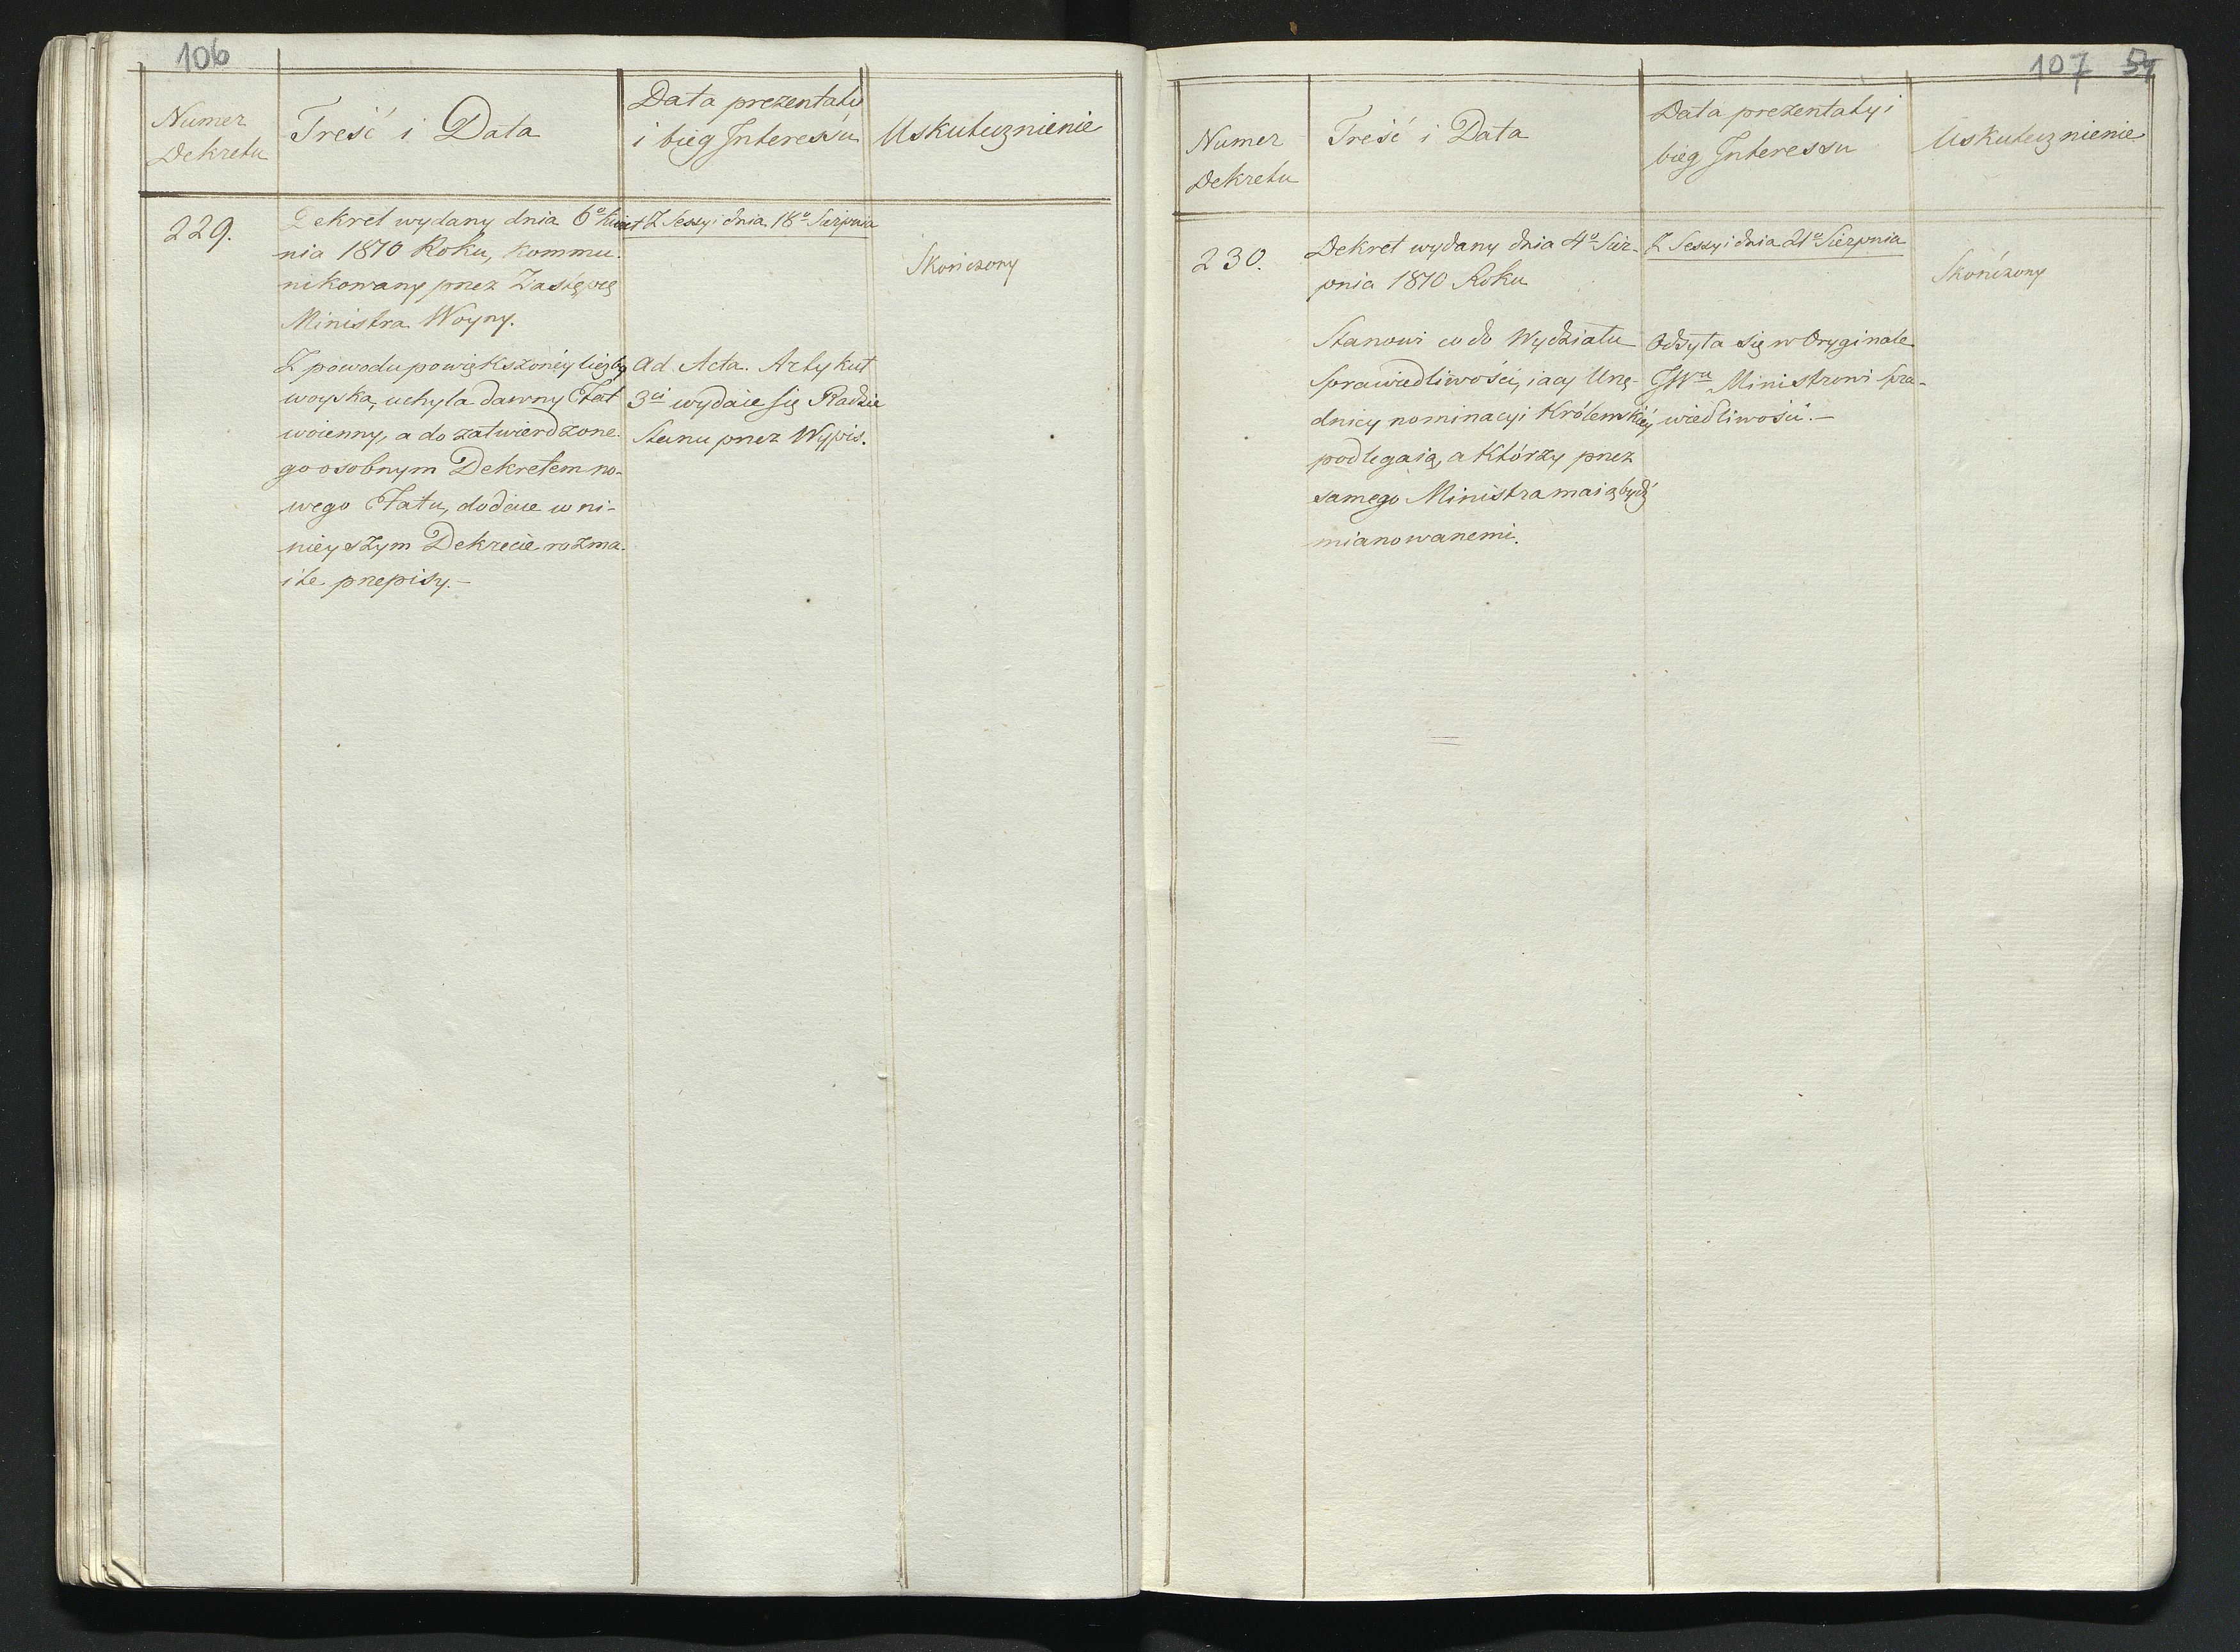 106
Numer
Dekretu
Treść i Data
Data prezentaty
i bieg Interessu
Uskutecznienie
229.
Dekret wydany dnia 6º Kwiet
nia 1810 Roku, kommu.
nikowany przez Zastępcę
Ministra Woyny.
Z powodu powiększonéy liczby
woyska, uchyla dawny Etat
woienny, a do zatwierdzone.
go osobnym Dekretem no-
wego Etatu, dodaie w ni-
nieyszym Dekrecie rozma.
ite przepisy.-
Z Sessyi dnia 18º Sierpnia
Ad Acta. Artykuł
3ci wydaie się Radzie
Stanu przez Wypis.
Skończony
107 54
Numer
Dekretu
Treść i Data
Data prezentaty i
bieg Interessu
Uskutecznienie
230.
Dekret wydany dnia 4º Sier-
pnia 1810 Roku
Stanowi co do Wydziału
Sprawiedliwości, iacy Urzę-
dnicy nominacyi Królewskiéy
podlegaią, a którzy przez
samego Ministra maią bydź
mianowanemi.
Z Sessyi dnia 21º Sierpnia
Odsyła się w Oryginale
JWu Ministrowi Spra-
wiedliwości.-
Skończony